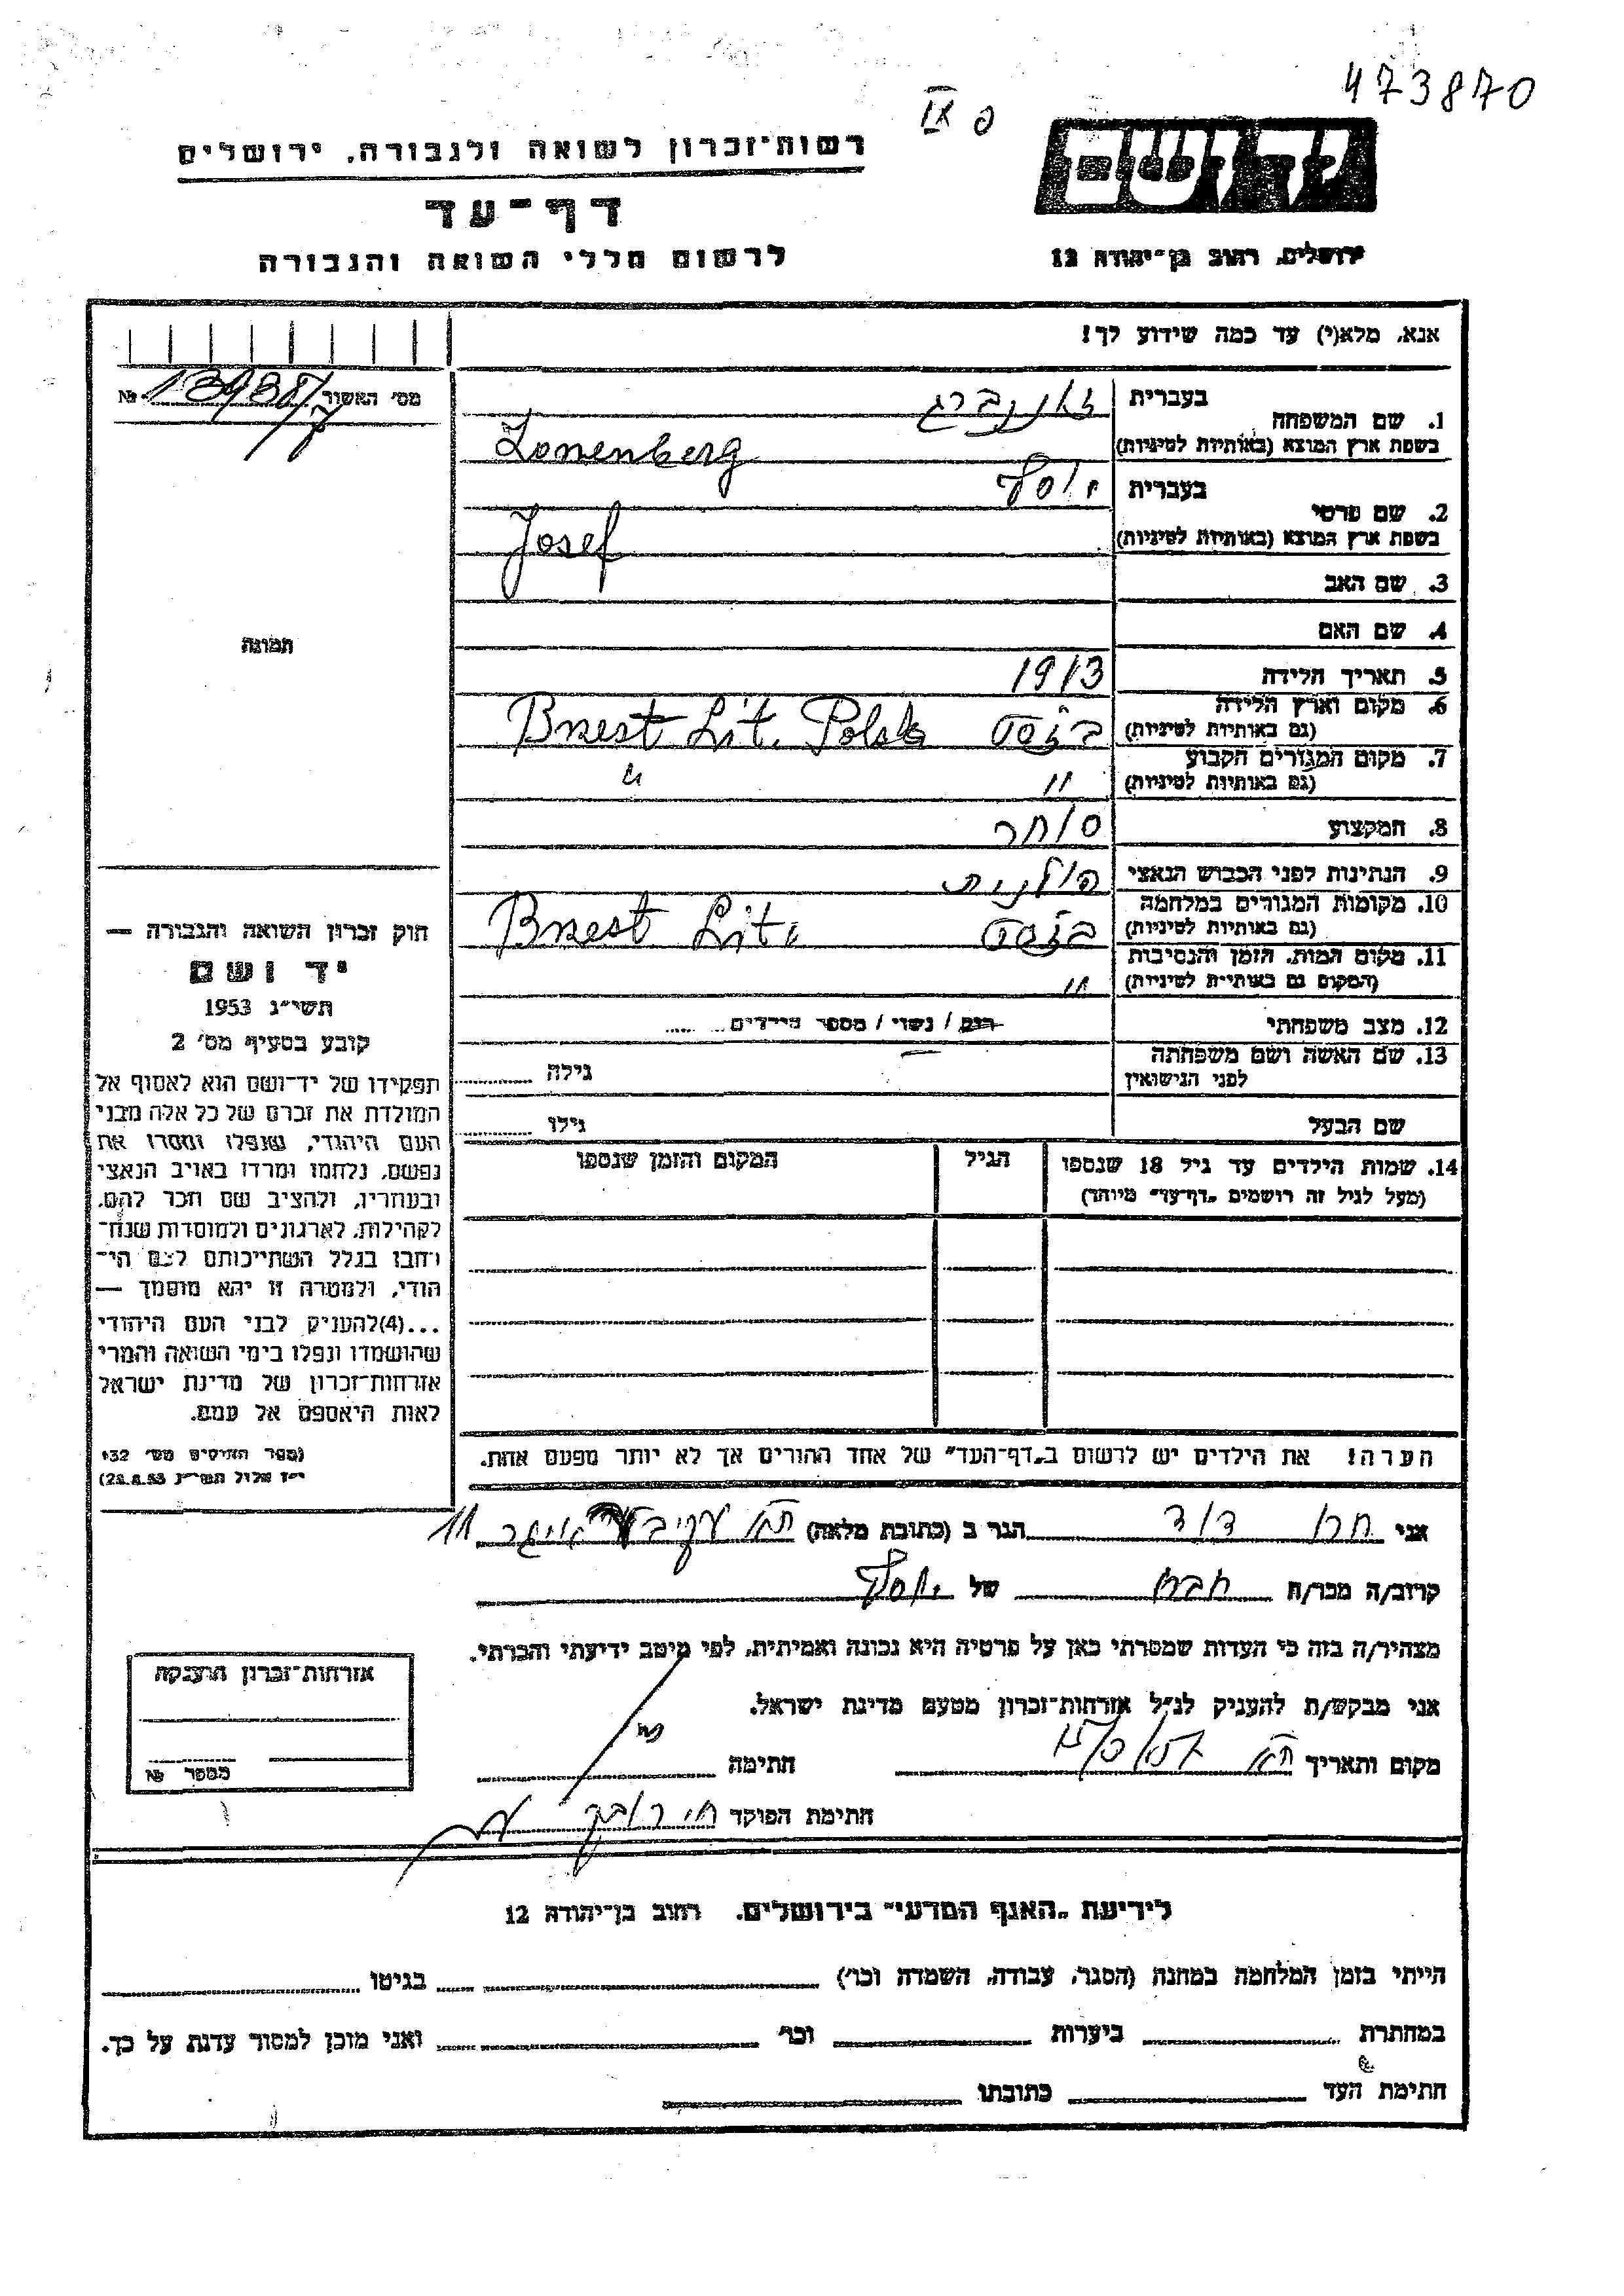 473870
IX פ
יד ושם
רשות־זכרון לשואה ולגבורה, ירושלים
דף־עד
לרשום חללי השואה והגבורה
ירושלים, רחוב בן־יהודה 12
אנא, מלא(י) עד כמה שידוע לך!
מס׳ האשור №
1. שם המשפחה
בעברית זאננברג
בשפת ארץ המוצא (באותיות לטיניות) Zonenberg
2. שם פרטי
בעברית יוסף
בשפת ארץ המוצא (באותיות לטיניות) Josef
3. שם האב
4. שם האם
5. תאריך הלידה 1913
6. מקום וארץ הלידה
(גם באותיות לטיניות) בז'סט Bzest Lit. Polsk
7. מקום המגורים הקבוע
(גם באותיות לטיניות) " "
8. המקצוע סוחר
9. הנתינות לפני הכבוש הנאצי פולנית
10. מקומות המגורים במלחמה
(גם באותיות לטיניות) בז'סט Bzest Lit.
11. מקום המות, הזמן והנסיבות
(המקום גם באותיות לטיניות) "
12. מצב משפחתי רוק / נשוי / מספר הילדים
13. שם האשה ושם משפחתה
לפני הנישואין גילה
שם הבעל גילו
14. שמות הילדים עד גיל 18 שנספו הגיל המקום והזמן שנספו
(מעל לגיל זה רושמים „דף־עד״ מיוחד)
הערה! את הילדים יש לרשום ב„דף־העד״ של אחד ההורים אך לא יותר מפעם אחת.
תמונה
חוק זכרון השואה והגבורה —
יד ושם
תשי״ג 1953
קובע בסעיף מס׳ 2
תפקידו של יד־ושם הוא לאסוף אל
המולדת את זכרם של כל אלה מבני
העם היהודי, שנפלו ומסרו את
נפשם, נלחמו ומרדו באויב הנאצי
ובעוזריו, ולהציב שם וזכר להם,
לקהילות, לארגונים ולמוסדות שנח־
רבו בגלל השתייכותם לעם הי־
הודי, ולמטרה זו יהא מוסמך —
...(4)להעניק לבני העם היהודי
שהושמדו ונפלו בימי השואה והמרי
אזרחות־זכרון של מדינת ישראל
לאות היאספם אל עמם.
(ספר החוקים מס׳ 132
י״ז אלול תשי״ג 28.8.53)
אני דוד הגר ב (כתובת מלאה) ת"א עקיבא איגר 11
קרוב/ה מכר/ה חברו של יוסף
מצהיר/ה בזה כי העדות שמסרתי כאן על פרטיה היא נכונה ואמיתית, לפי מיטב ידיעתי והכרתי.
אני מבקש/ת להעניק לנ״ל אזרחות־זכרון מטעם מדינת ישראל.
מקום ותאריך ת"א חתימה
חתימת הפוקד
אזרחות־זכרון הוענקה
מספר №
לידיעת „האגף המדעי״ בירושלים, רחוב בן־יהודה 12
הייתי בזמן המלחמה במחנה (הסגר, עבודה, השמדה וכו׳) בגיטו
במחתרת ביערות וכו׳ ואני מוכן למסור עדות על כך.
חתימת העד כתובתו